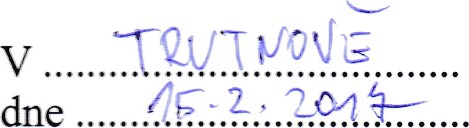 V TRUTNOVĚ
dne 15.2.2017